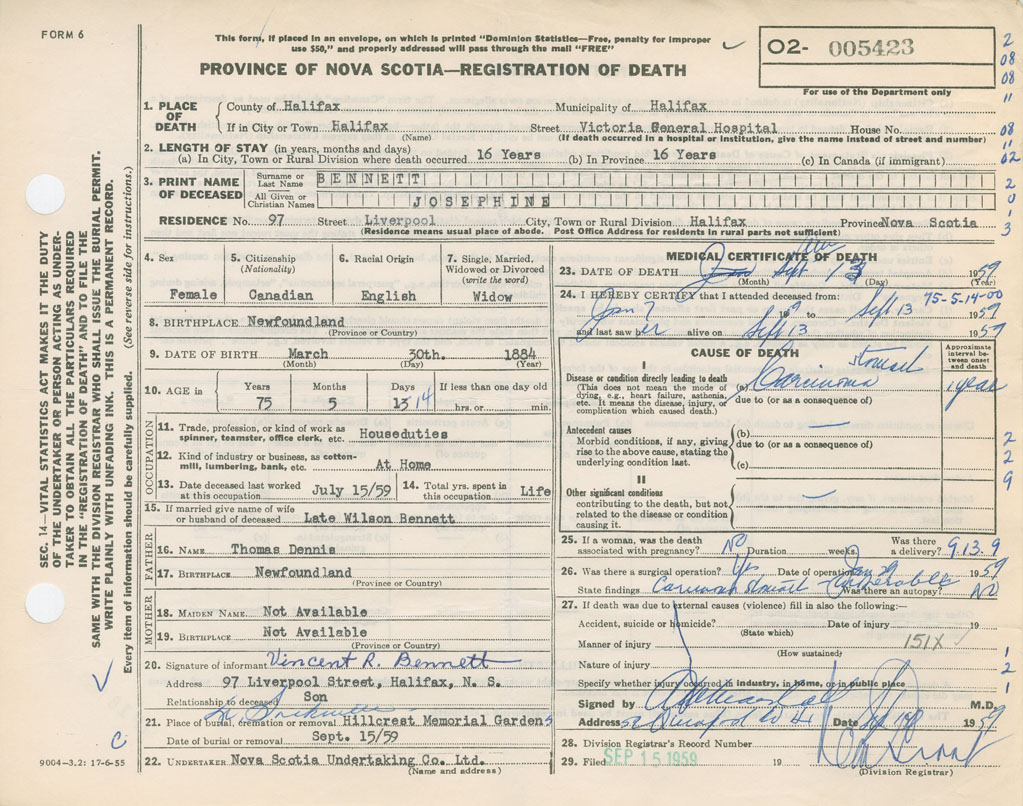 FORM 6
This form, if placed in an envelope, on which is printed "Dominion Statistics—Free, penalty for improper
use $50," and properly addressed will pass through the mail "FREE"
PROVINCE OF NOVA SCOTIA—REGISTRATION OF DEATH
02- 005423
For use of the Department only
2
08
08
11
08
11
02
2
0
1
3
SEC. 14—VITAL STATISTICS ACT MAKES IT THE DUTY
OF THE UNDERTAKER OR PERSON ACTING AS UNDER-
TAKER TO OBTAIN ALL THE PARTICULARS REQUIRED
IN THE "REGISTRATION OF DEATH" AND TO FILE THE
SAME WITH THE DIVISION REGISTRAR WHO SHALL ISSUE THE BURIAL PERMIT.
WRITE PLAINLY WITH UNFADING INK. THIS IS A PERMANENT RECORD.
Every item of information should be carefully supplied. (See reverse side for instructions.)
1. PLACE OF DEATH
County of Halifax Municipality of Halifax
If in City or Town Halifax Street Victoria General Hospital House No.
(Name) (If death occurred in a hospital or institution, give the name instead of street and number)
2. LENGTH OF STAY (in years, months and days)
(a) In City, Town or Rural Division where death occurred 16 Years (b) In Province 16 Years (c) In Canada (if immigrant)
3. PRINT NAME OF DECEASED
Surname or Last Name BENNETT
All Given or Christian Names JOSEPHINE
RESIDENCE No. 97 Street Liverpool City, Town or Rural Division Halifax Province Nova Scotia
(Residence means usual place of abode. Post Office Address for residents in rural parts not sufficient)
4. Sex
Female
5. Citizenship
(Nationality)
Canadian
6. Racial Origin
English
7. Single, Married,
Widowed or Divorced
(write the word)
Widow
8. BIRTHPLACE Newfoundland
(Province or Country)
9. DATE OF BIRTH March 30th. 1884
(Month) (Day) (Year)
10. AGE in
Years Months Days If less than one day old
75 5 13 14 hrs. or min.
OCCUPATION
11. Trade, profession, or kind of work as
spinner, teamster, office clerk, etc. Houseduties
12. Kind of industry or business, as cotton-
mill, lumbering, bank, etc. At Home
13. Date deceased last worked
at this occupation July 15/59
14. Total yrs. spent in
this occupation Life
15. If married give name of wife
or husband of deceased Late Wilson Bennett
FATHER
16. NAME Thomas Dennis
17. BIRTHPLACE Newfoundland
(Province or Country)
MOTHER
18. MAIDEN NAME Not Available
19. BIRTHPLACE Not Available
(Province or Country)
20. Signature of informant Vincent R. Bennett
Address 97 Liverpool Street, Halifax, N. S.
Relationship to deceased Son
21. Place of burial, cremation or removal Hillcrest Memorial Gardens
Date of burial or removal Sept. 15/59
22. UNDERTAKER Nova Scotia Undertaking Co. Ltd.
(Name and address)
9004-3.2: 17-6-55
C
MEDICAL CERTIFICATE OF DEATH
23. DATE OF DEATH Sept 13 1959
(Month) (Day) (Year)
75-5-14-00
24. I HEREBY CERTIFY that I attended deceased from:
Jan 7 19 to Sept 13 1959
and last saw her alive on Sept 13 1959
CAUSE OF DEATH
Approximate interval between onset and death
I
Disease or condition directly leading to death
(This does not mean the mode of
dying, e.g., heart failure, asthenia,
etc. It means the disease, injury, or
complication which caused death.)
(a) Carcinoma stomach 1 year
due to (or as a consequence of)
Antecedent causes
Morbid conditions, if any, giving
rise to the above cause, stating the
underlying condition last.
(b)
due to (or as a consequence of)
(c)
II
Other significant conditions
contributing to the death, but not
related to the disease or condition
causing it.
2
2
9
25. If a woman, was the death
associated with pregnancy? NO Duration weeks Was there
a delivery? 9.13.9
26. Was there a surgical operation? Yes Date of operation Jan 29 1959
State findings Carcinoma Stomach - Was there an autopsy? NO
27. If death was due to external causes (violence) fill in also the following:—
Accident, suicide or homicide? Date of injury 19
(State which)
Manner of injury 151X
(How sustained)
Nature of injury
Specify whether injury occurred in industry, in home, or in public place
1
2
1
Signed by M.D.
Address Date 1959
28. Division Registrar's Record Number
29. Filed SEP 15 1959 19
(Division Registrar)